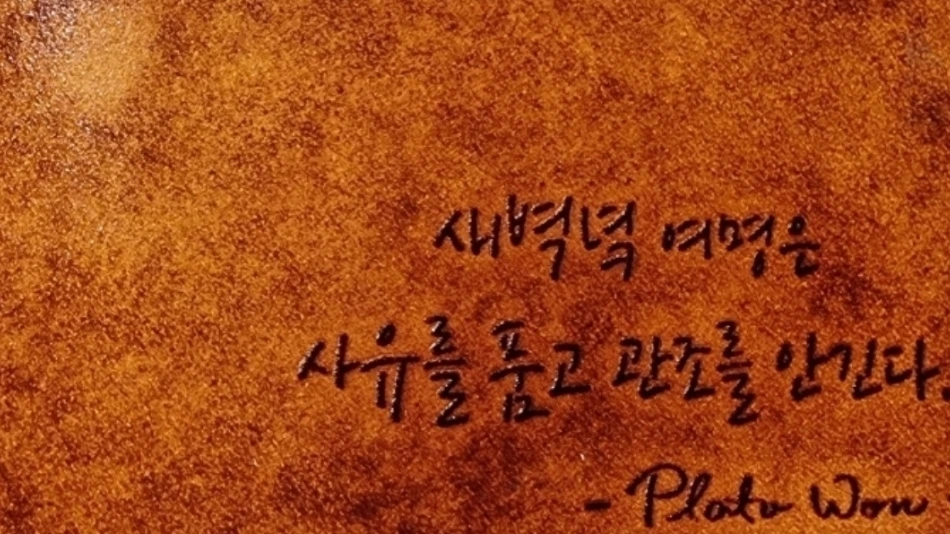 새벽녘 여명은
사유를 품고 관조를 안긴다.
- Plato Won